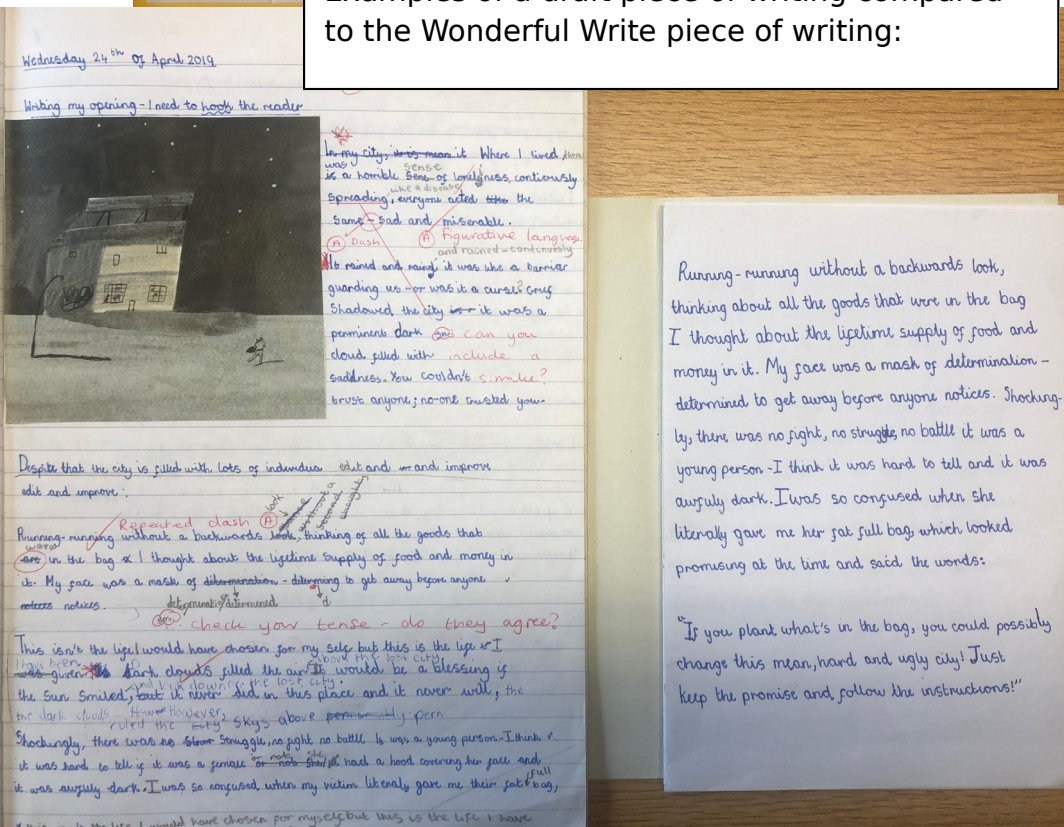 Examples of a draft piece of writing compared
to the Wonderful Write piece of writing:
Wednesday 24th of April 2019
Writing my opening - I need to hook the reader
In my city, it is mean it Where I lived there
was
is a horrible sens of loneliness, contiously
sense
like a disease
spreading, everyone acted like the
same - sad and miserable.
A Dash
A figurative language
and rained - continuosly
It rained and raing, it was like a barrier
guarding us - or was it a curse? Grey
Shadowed the city it was a
perminent dark
can you
cloud filled with
include a
saddness. You couldn't
simile?
trust anyone; no-one trusted you.
Despite that the city is filled with lots of individus edit and and improve
edit and improve:
Repeated dash A
look
without a
second
Running - running without a backwards look, thinking of all the goods that
were
are in the bag & I thought about the lifetime supply of food and money in
it. My face was a mask of ditermenation - diterming to get away before anyone
notices notices.
determination determined
d
check your tense - do they agree?
This isn't the life I would have chosen for my self but this is the life I
I have been
was given Dark clouds filled the air It would be a blessing if
above the lost city
and look down on the lost city.
the sun smiled, but it never did in this place and it never will, the
the dark clouds However,
ruled the city skys above perm
Shockingly, there was no struggle, no fight, no battle It was a young person - I think
it was hard to tell if it was a female or not she had a hood covering her face and
it was awfuly dark. I was so confused, when my victim literaly gave me their fat full bag,
this isn't the life I would have chosen for myself but this is the life I have
Running - running without a backwards look,
thinking about all the goods that were in the bag
I thought about the lifetime supply of food and
money in it. My face was a mask of determination -
determined to get away before anyone notices. Shocking-
ly, there was no fight, no struggle, no battle it was a
young person - I think it was hard to tell and it was
awfuly dark. I was so confused when she
literally gave me her fat full bag, which looked
promising at the time and said the words:
"If you plant what's in the bag, you could possibly
change this mean, hard and ugly city! Just
keep the promise and follow the instructions!"